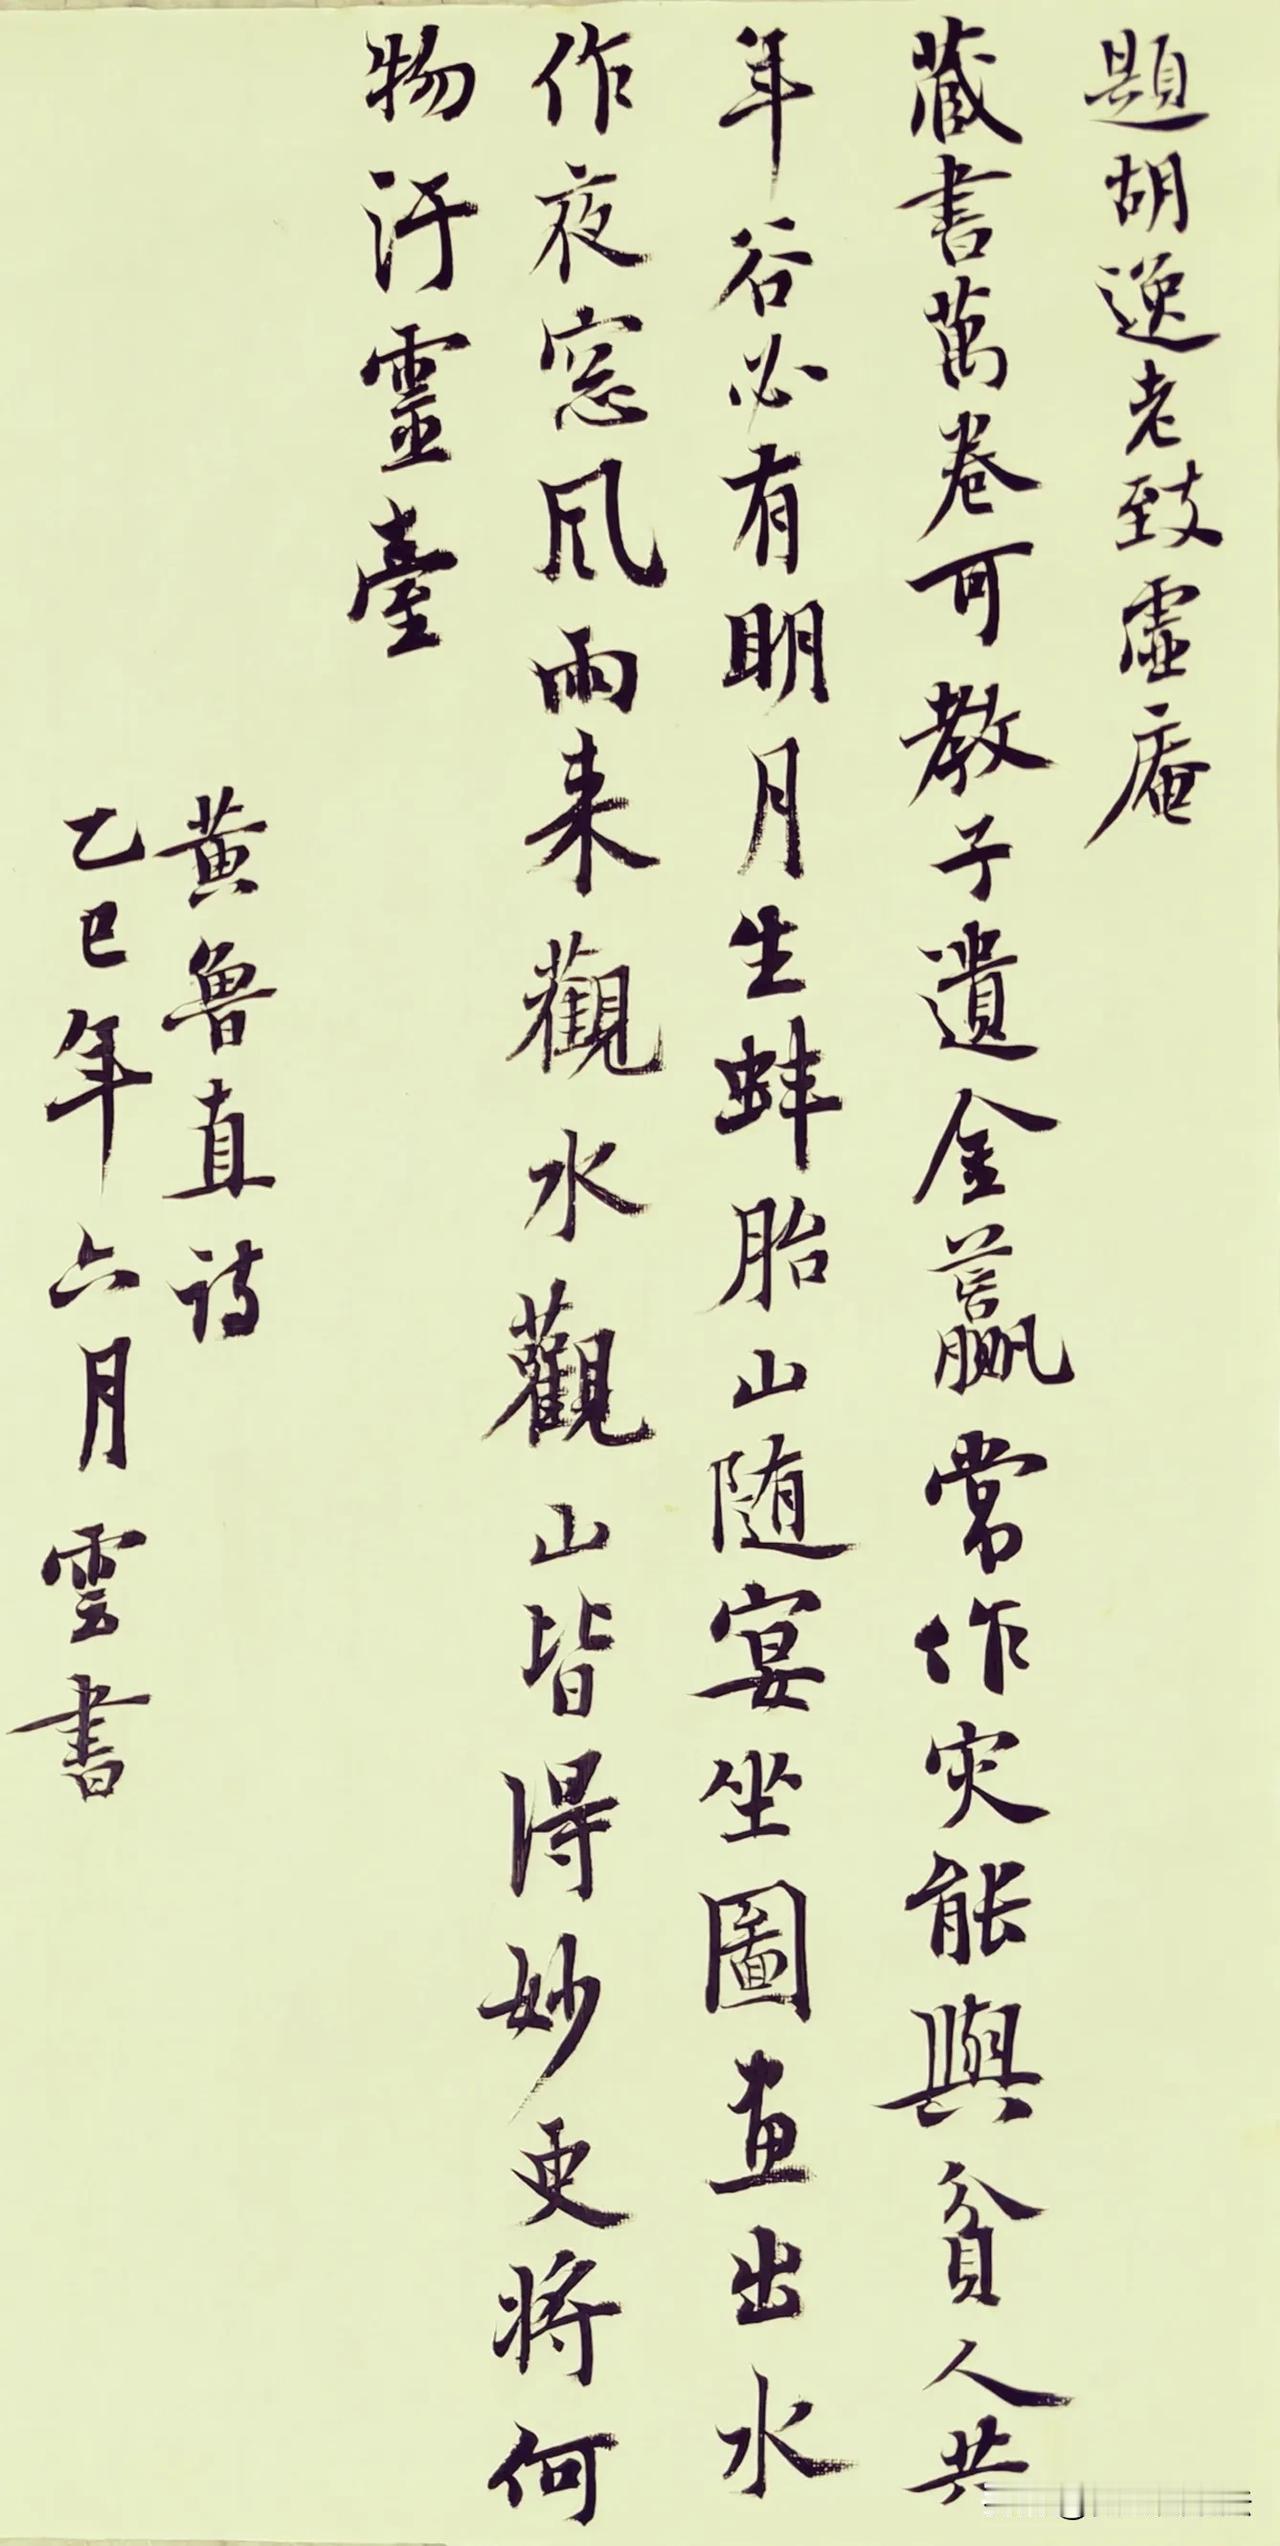 題胡逸老致虛庵
藏書萬卷可教子遺金籯常作灾能與貧人共
年谷必有明月生蚌胎山随宴坐圖畫出水
作夜窓风雨来觀水觀山皆得妙更将何
物汙靈臺
黄鲁直诗
乙巳年六月雲書